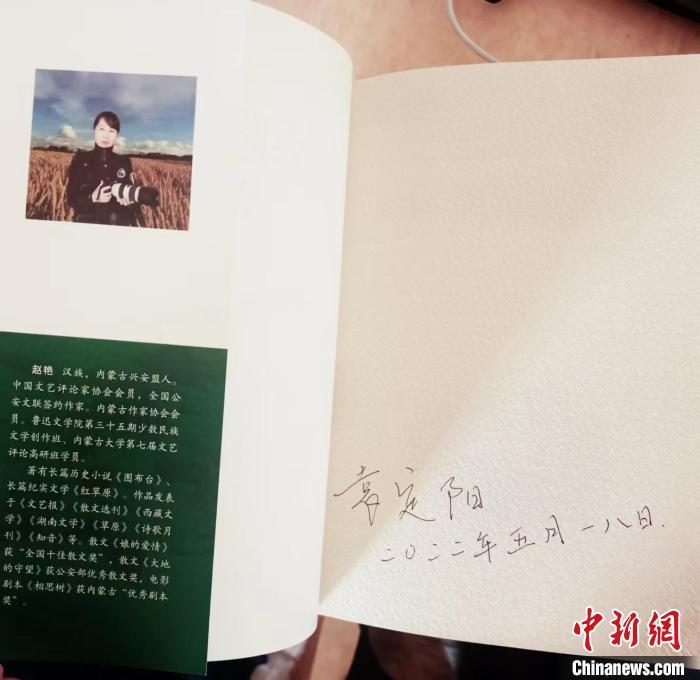 赵艳 汉族，内蒙古兴安盟人。
中国文艺评论家协会会员，全国公
安文联签约作家。内蒙古作家协会会
员。鲁迅文学院第三十五期少数民族
文学创作班、内蒙古大学第七届文艺
评论高研班学员。
著有长篇历史小说《图布台》、
长篇纪实文学《红草原》。作品发表
于《文艺报》《散文选刊》《西藏文
学》《湖南文学》《草原》《诗歌月
刊》《知音》等。散文《娘的爱情》
获“全国十佳散文奖”，散文《大地
的守望》获公安部优秀散文奖，电影
剧本《相思树》获内蒙古“优秀剧本
奖”。
袁定阳
二〇二二年五月一八日.
中新网
Chinanews.com